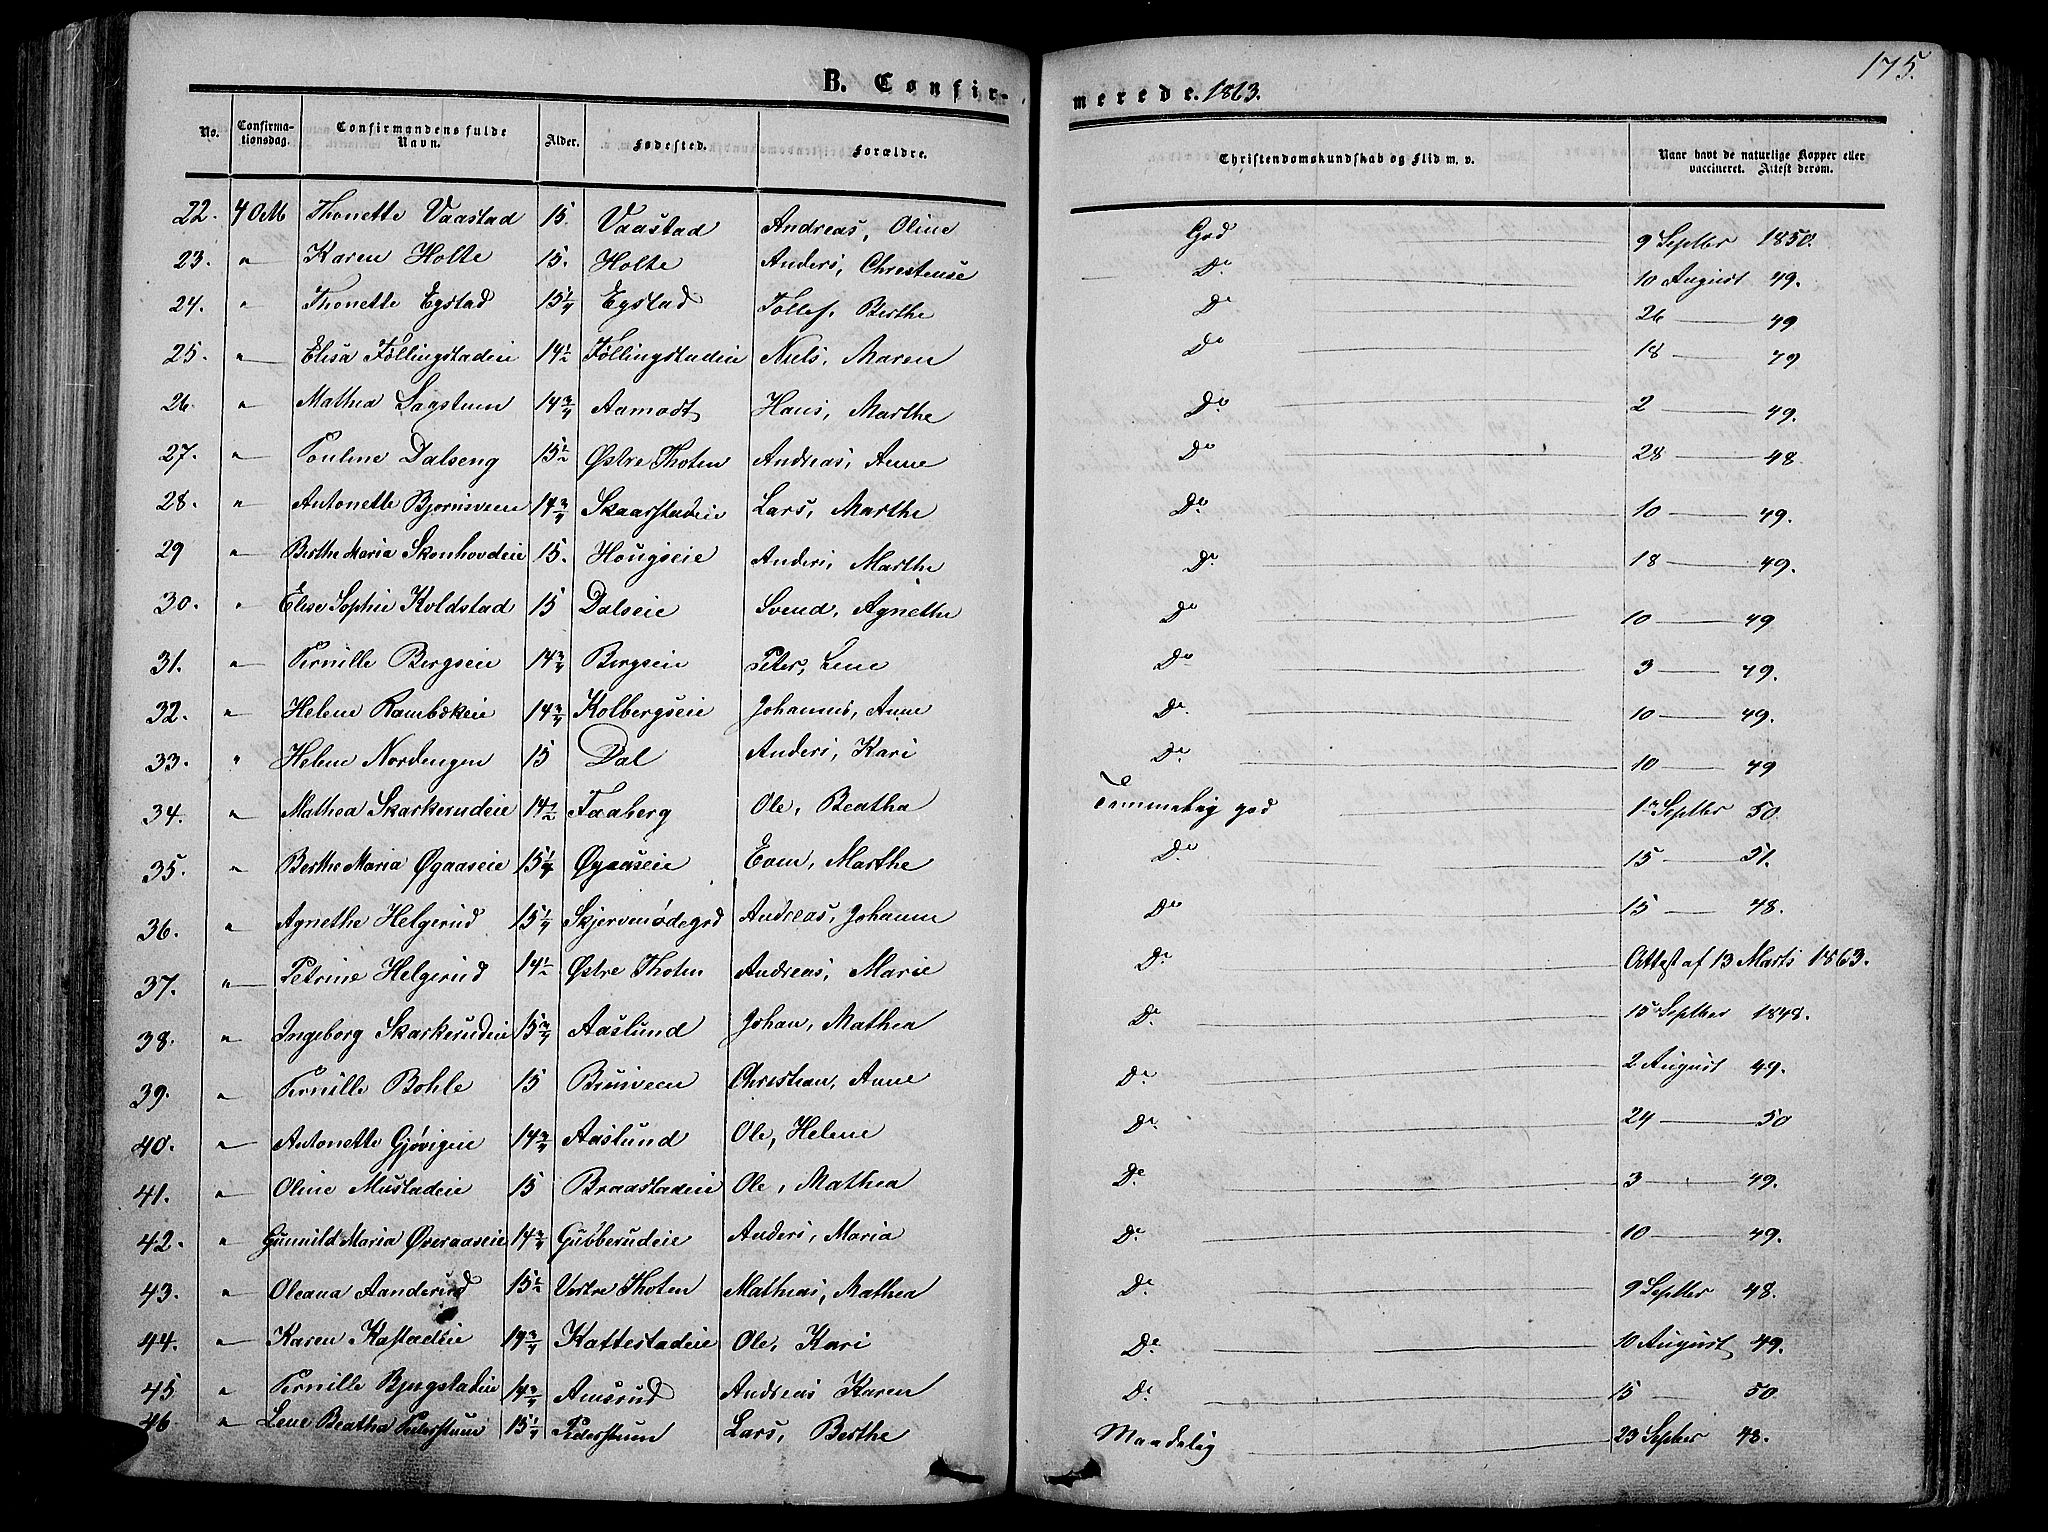 175.
B. Confir- merede. 1863.
No. Confirmationsdag. Confirmandens fulde Navn. Alder. Fødested. Forældre. Christendomskundskab og Flid m. v. Naar havt de naturlige Kopper eller vaccineret. Attest derom.
22. 4 Thonette Vaastad 15. Vaastad Andreas, Oline God 9 Septber 1850.
23. " Karen Holte 15. Holte Anders, Christense Do 10 August 49.
24. " Thonette Egstad 15 1/4 Egstad Tollef, Berthe Do 26 — 49
25. " Elisa Føllingstadeie 14 1/2 Føllingstadeie Niels, Maren Do 18 — 49
26. " Mathea Sagstuen 14 3/4 Aamodt Hans, Marthe Do 2 — 49.
27. " Pouline Dalseng 15 1/2 Østre Thoten Andreas, Anne Do 28 — 48
28. " Antonette Bjørnsveen 14 3/4 Skaarstadeie Lars, Marthe Do 10 — 49.
29 " Berthe Maria Skonhovdeie 15. Hougseie Anders, Marthe Do 18 — 49.
30. " Elise Sophie Koldstad 15 Dalseie Svend, Agnethe Do 10 — 49
31. " Pernille Bergseie 14 3/4 Bergseie Peter, Lene Do 3 — 49.
32. " Helene Rambækeie 14 3/4 Kolbergseie Johannes, Anne Do 10 — 49.
33. " Helene Nordengen 15 Dal Anders, Kari Do 10 — 49
34. " Mathea Skarkerudeie 14 1/2 Faaberg Ole, Beatha Temmelig god Septber 50.
35. " Berthe Maria Øgaaseie 15 1/4 Øgaaseie Even, Marthe Do 15 — 51.
36. " Agnethe Helgerud 15 1/4 Skjervenødegrd Andreas, Johanne Do 15 — 48.
37. " Petrine Helgerud 14 1/2 Østre Thoten Andreas, Marie Do Attest af 13 Marts 1863.
38. " Ingeborg Skarkerudeie 15 3/4 Aaslund Johan, Mathea Do 15 Septber 1848.
39. " Pernille Bohle 15 Bruisveen Christian, Anne Do 2 August 49.
40. " Antonette Gjøvigeie 14 3/4 Aaslund Ole, Helene Do 24 — 50
41. " Oline Mustadeie 15 Braastadeie Ole, Mathea Do 3 — 49.
42. " Gunnild Maria Øveraaseie 14 3/4 Gubberudeie Anders, Maria Do 10 — 49.
43. " Oleana Aanderud 15 1/2 Vestre Thoten Mathias, Mathea Do 9 Septber 48.
44. " Karen Kastadeie 14 3/4 Kattestadeie Ole, Kari Do 10 August 49.
45 " Pernille Bjugstadeie 14 3/4 Amsrud Andreas Karen Do 15 — 50
46 " Lene Beatha Pederstuen 15 1/4 Pederstuen Lars, Berthe Maadelig 23 Septber 48.